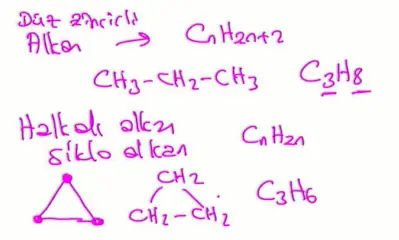 Düz zincirli
Alkan → CnH2n+2
CH3-CH2-CH3 C3H8
Halkalı alkan CnH2n
siklo alkan
CH2 C3H6
CH2-CH2